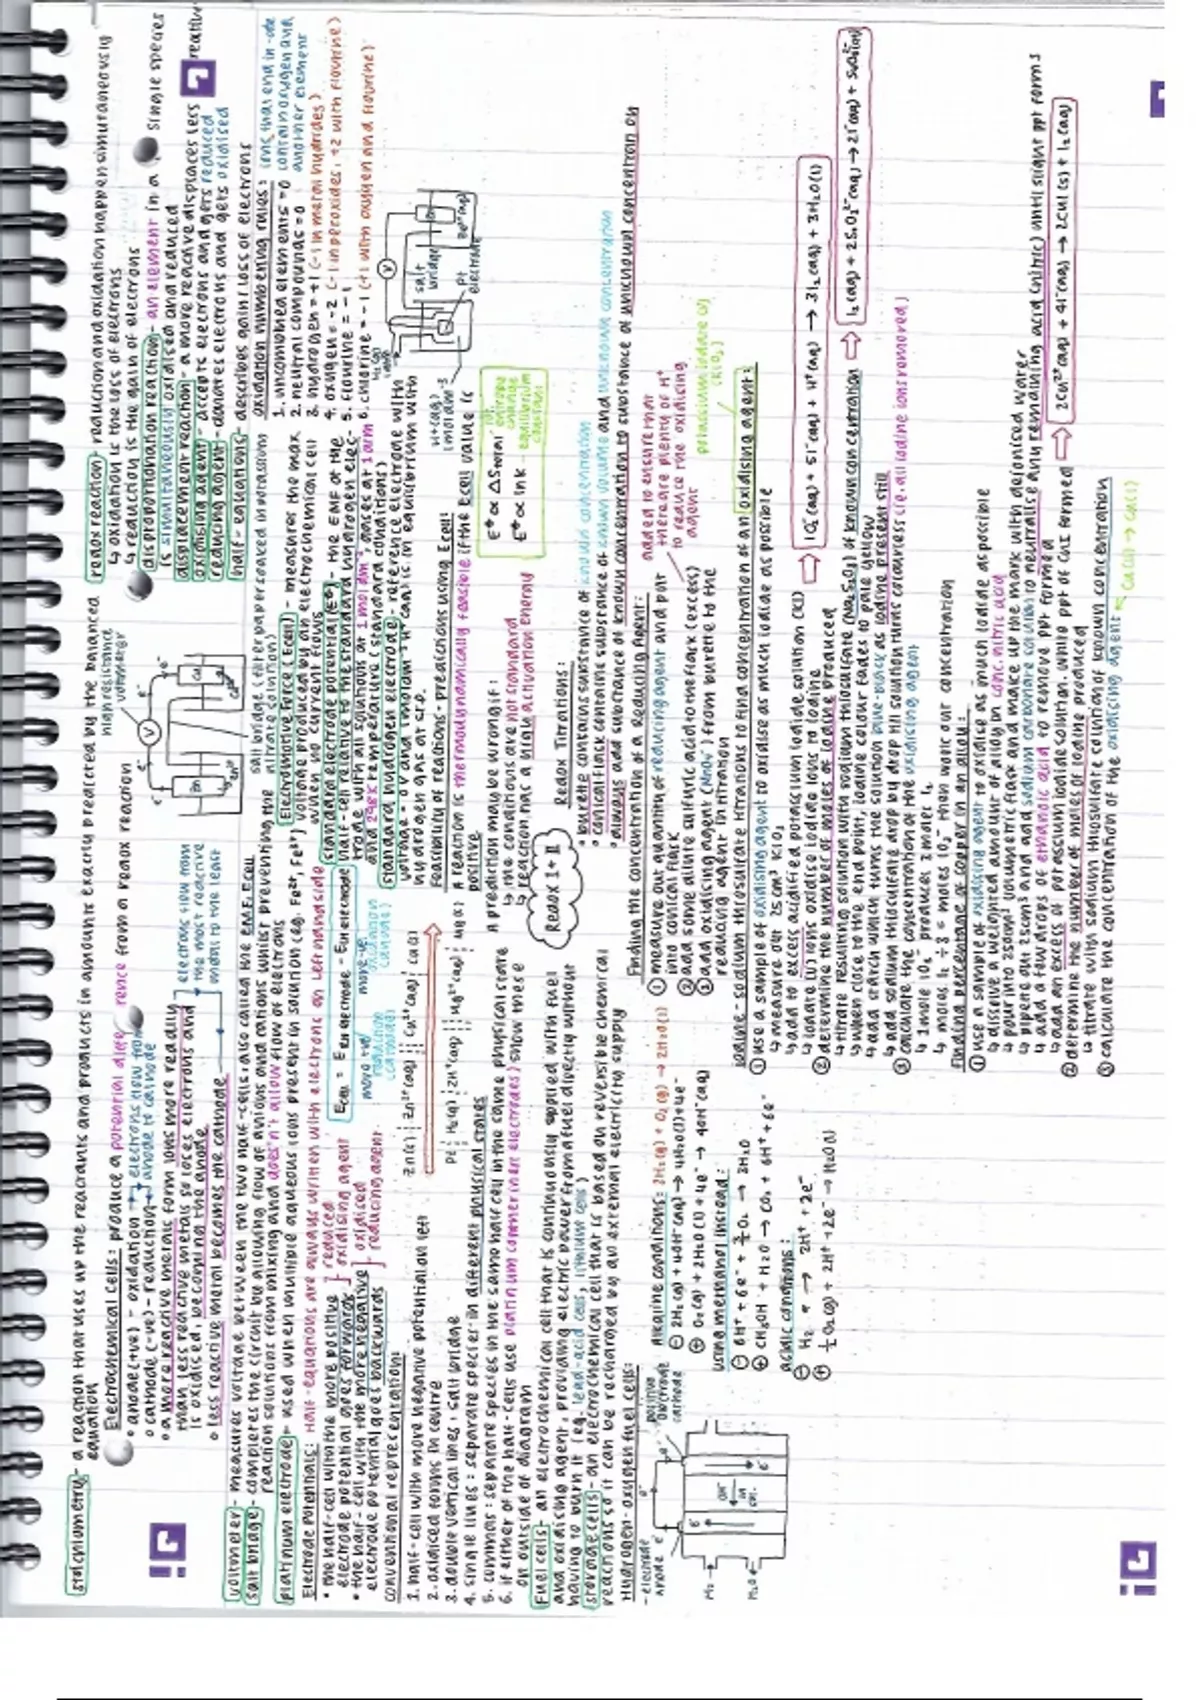 stoichiometry - a reaction that uses up the reactants and products in amounts exactly predicted by the balanced
equation
Electrochemical cells: produce a potential difference from a redox reaction
• anode (-ve) - oxidation → electrons flow from
• cathode (+ve) - reduction → anode to cathode
• a more reactive metals form ions more readily
than less reactive metals so loses electrons and
is oxidised, becoming the anode
• less reactive metal becomes the cathode
electrons flow from
the most reactive
metal to the least
high resistance
voltmeter
V
e⁻
Zn
Cu
salt bridge (filter paper soaked in potassium
nitrate solution)
voltmeter - measures voltage between the two half-cells, also called the EMF, Ecell
salt bridge - completes the circuit by allowing flow of anions and cations whilst preventing the
reaction solutions from mixing and doesn't allow flow of electrons
platinum electrode - used when multiple aqueous ions present in solution (e.g. Fe²⁺, Fe³⁺)
Electrode Potentials: half-equations are always written with electrons on left hand side
• the half-cell with the more positive } reduced
electrode potential goes forwards } oxidising agent
• the half-cell with the more negative } oxidised
electrode potential goes backwards } reducing agent
conventional representation:
1. half-cell with more negative potential on left
2. oxidised forms in centre
3. double vertical lines: salt bridge
4. single lines: separate species in different physical states
5. commas: separate species in the same half cell in the same physical state
6. if either of the half-cells use platinum (other inert electrodes) show these
on outside of diagram
Zn(s) | Zn²⁺(aq) || Cu²⁺(aq) | Cu(s)
Pt | H₂(g) | 2H⁺(aq) || Mg²⁺(aq) | Mg(s)
Fuel cells - an electrochemical cell that is continuously supplied with fuel
and oxidising agent, providing electric power from a fuel directly without
having to burn it (eg. lead-acid cells, lithium cells)
storage cells - an electrochemical cell that is based on reversible chemical
reactions so it can be recharged by an external electricity supply
Hydrogen-oxygen fuel cells:
- electrode
anode
positive
electrode
cathode
OH⁻
Alkaline conditions: 2H₂(g) + O₂(g) → 2H₂O(l)
⊖ 2H₂(g) + 4OH⁻(aq) → 4H₂O(l) + 4e⁻
⊕ O₂(g) + 2H₂O(l) + 4e⁻ → 4OH⁻(aq)
using methanol instead:
⊖ 6H⁺ + 6e⁻ + 3/2 O₂ → 3H₂O
⊕ CH₃OH + H₂O → CO₂ + 6H⁺ + 6e⁻
acidic conditions:
⊖ H₂ → 2H⁺ + 2e⁻
⊕ ½O₂(g) + 2H⁺ + 2e⁻ → H₂O(l)
redox reaction - reduction and oxidation happen simultaneously
↳ oxidation is the loss of electrons
↳ reduction is the gain of electrons
disproportionation reaction - an element in a single species
is simultaneously oxidised and reduced
displacement reaction - a more reactive displaces less reactive
oxidising agent - accepts electrons and gets reduced
reducing agent - donates electrons and gets oxidised
half-equations - describes gain/loss of electrons
oxidation numbering rules:
1. uncombined elements = 0
2. neutral compounds = 0
3. hydrogen = +1 (-1 in metal hydrides)
4. oxygen = -2 (-1 in peroxides, +2 with flourine)
5. flourine = -1
6. chlorine = -1 (+1 with oxygen and flourine)
ions that end in -ate
contain oxygen and
another element
Electromotive Force (Ecell) - measures the max
voltage produced by an electrochemical cell
when no current flows
standard electrode potential (E°) - the EMF of the
half-cell relative to the standard hydrogen elec-
trode with all solutions at 1 mol dm⁻³, gases at 1 atm
and 298K temperature (standard conditions)
standard hydrogen electrode - reference electrode with
voltage = 0 V and 1 mol dm⁻³ H⁺ (aq) is in equilibrium with
hydrogen gas at s.t.p.
salt
bridge
Pt
electrode
H⁺(aq)
1 mol dm⁻³
Feasibility of reactions - predictions using Ecell:
A reaction is thermodynamically feasible if the Ecell value is
positive
A prediction may be wrong if:
↳ the conditions are not standard
↳ reaction has a high activation energy
E° ∝ ΔS total
E° ∝ ln K - equilibrium
constant
Redox I + II
Redox Titrations:
• burette contains substance of known concentration
• conical flask contains substance of known volume and unknown concentration
• always add substance of known concentration to substance of unknown concentration
Finding the concentration of a Reducing Agent:
① measure out quantity of reducing agent and put
into conical flask
② add some dilute sulfuric acid to the flask (excess)
③ add oxidising agent (MnO₄⁻) from burette to the
reducing agent in titration
added to ensure that
there are plenty of H⁺
to reduce the oxidising
agent
potassium iodate (V)
(KIO₃)
Iodine-sodium thiosulfate titrations to find concentration of an oxidising agent:
① use a sample of oxidising agent to oxidise as much iodide as possible
↳ measure out 25 cm³ KIO₃
↳ add to excess acidified potassium iodide solution (KI)
↳ iodate (V) ions oxidise iodide ions to iodine
IO₃⁻(aq) + 5I⁻(aq) + 6H⁺(aq) → 3I₂(aq) + 3H₂O(l)
② determine the number of moles of iodine produced
↳ titrate resulting solution with sodium thiosulfate (Na₂S₂O₃) of known concentration
I₂(aq) + 2S₂O₃²⁻(aq) → 2I⁻(aq) + S₄O₆²⁻(aq)
↳ when close to the end point, iodine colour fades to pale yellow
↳ add starch which turns the solution blue-black as iodine present still
↳ add sodium thiosulfate drop by drop till solution turns colourless (i.e. all iodine ions removed)
③ calculate the concentration of the oxidising agent
↳ 1 mole IO₃⁻ produces 3 moles I₂
↳ moles I₂ ÷ 3 = moles IO₃⁻ then work out concentration
Finding percentage of copper in an alloy:
① use a sample of oxidising agent to oxidise as much iodide as possible
↳ dissolve a weighed amount of alloy in conc. nitric acid
↳ pour into 250ml volumetric flask and make up the mark with deionised water
↳ pipette out 25cm³ and add sodium carbonate solution to neutralise any remaining acid (nitric) until slight ppt forms
↳ add a few drops of ethanoic acid to remove ppt formed
↳ add an excess of potassium iodide solution, white ppt of CuI formed
2Cu²⁺(aq) + 4I⁻(aq) → 2CuI(s) + I₂(aq)
② determine the number of moles of iodine produced
↳ titrate with sodium thiosulfate solution of known concentration
③ calculate the concentration of the oxidising agent
Cu(II) → Cu(I)